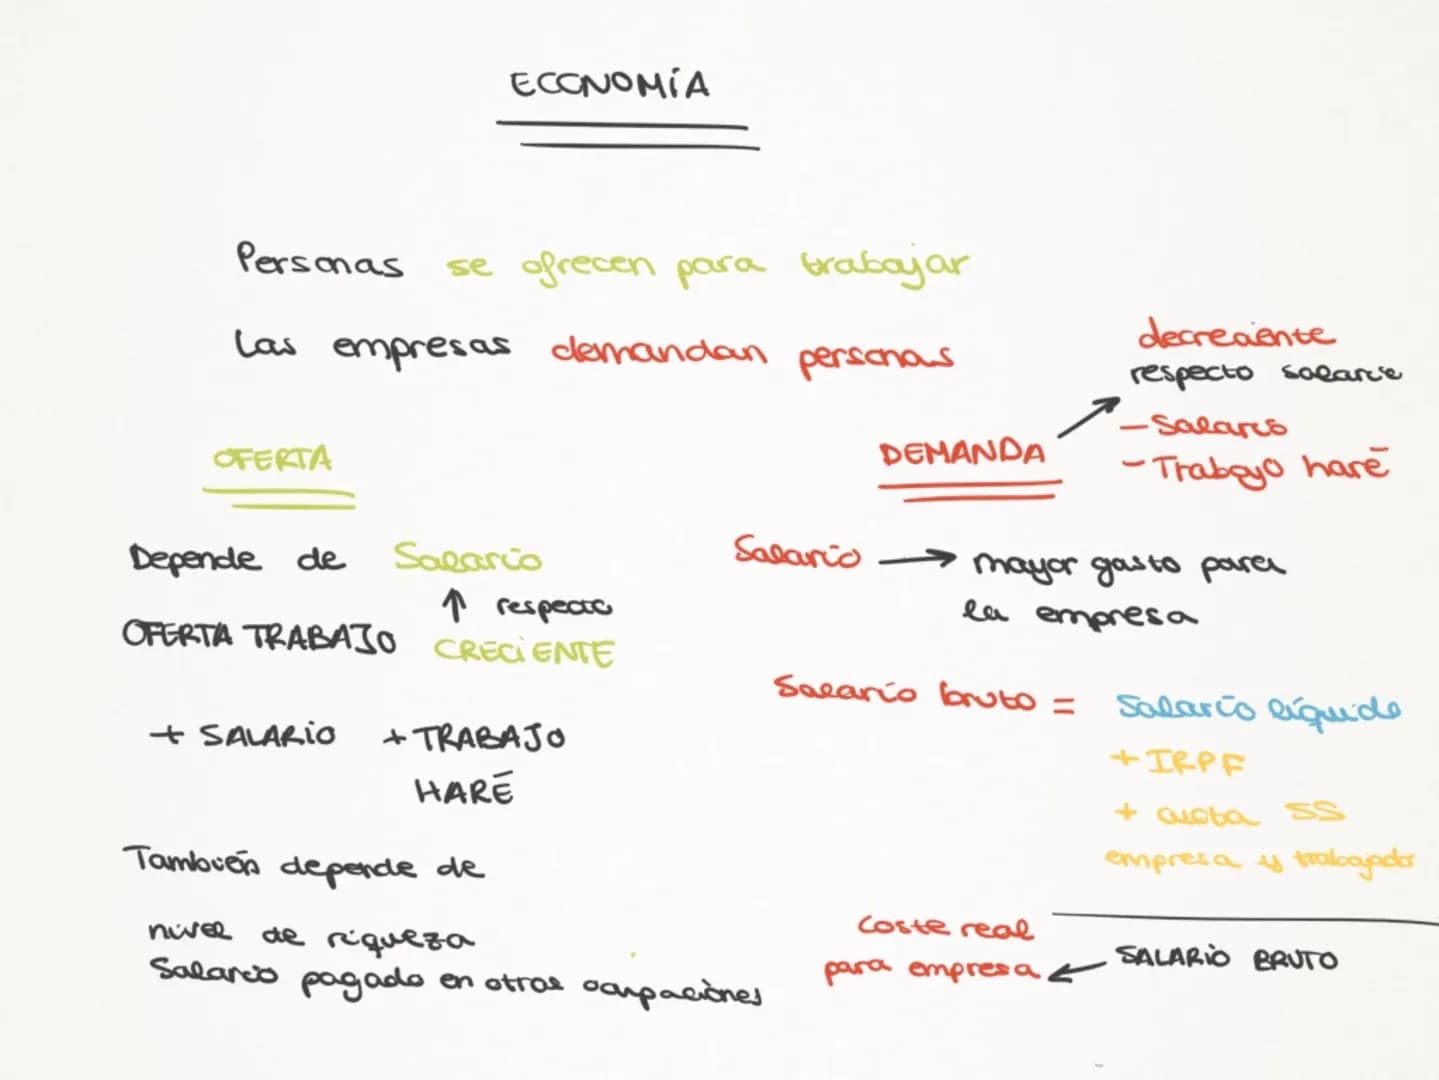 ECONOMÍA
Personas se ofrecen para trabajar
Las empresas demandan personas
OFERTA
Depende de Salario
↑ respecto
OFERTA TRABAJO CRECIENTE
+ SALARIO + TRABAJO
HARÉ
También depende de
nivel de riqueza
Salario pagado en otras ocupaciones
DEMANDA
decreciente
respecto salario
- Salario
- Trabajo haré
Salario → mayor gasto para
la empresa
Salario bruto = Salario líquido
+ IRPF
+ cuota SS
empresa y trabajador
SALARIO BRUTO
Coste real
para empresa